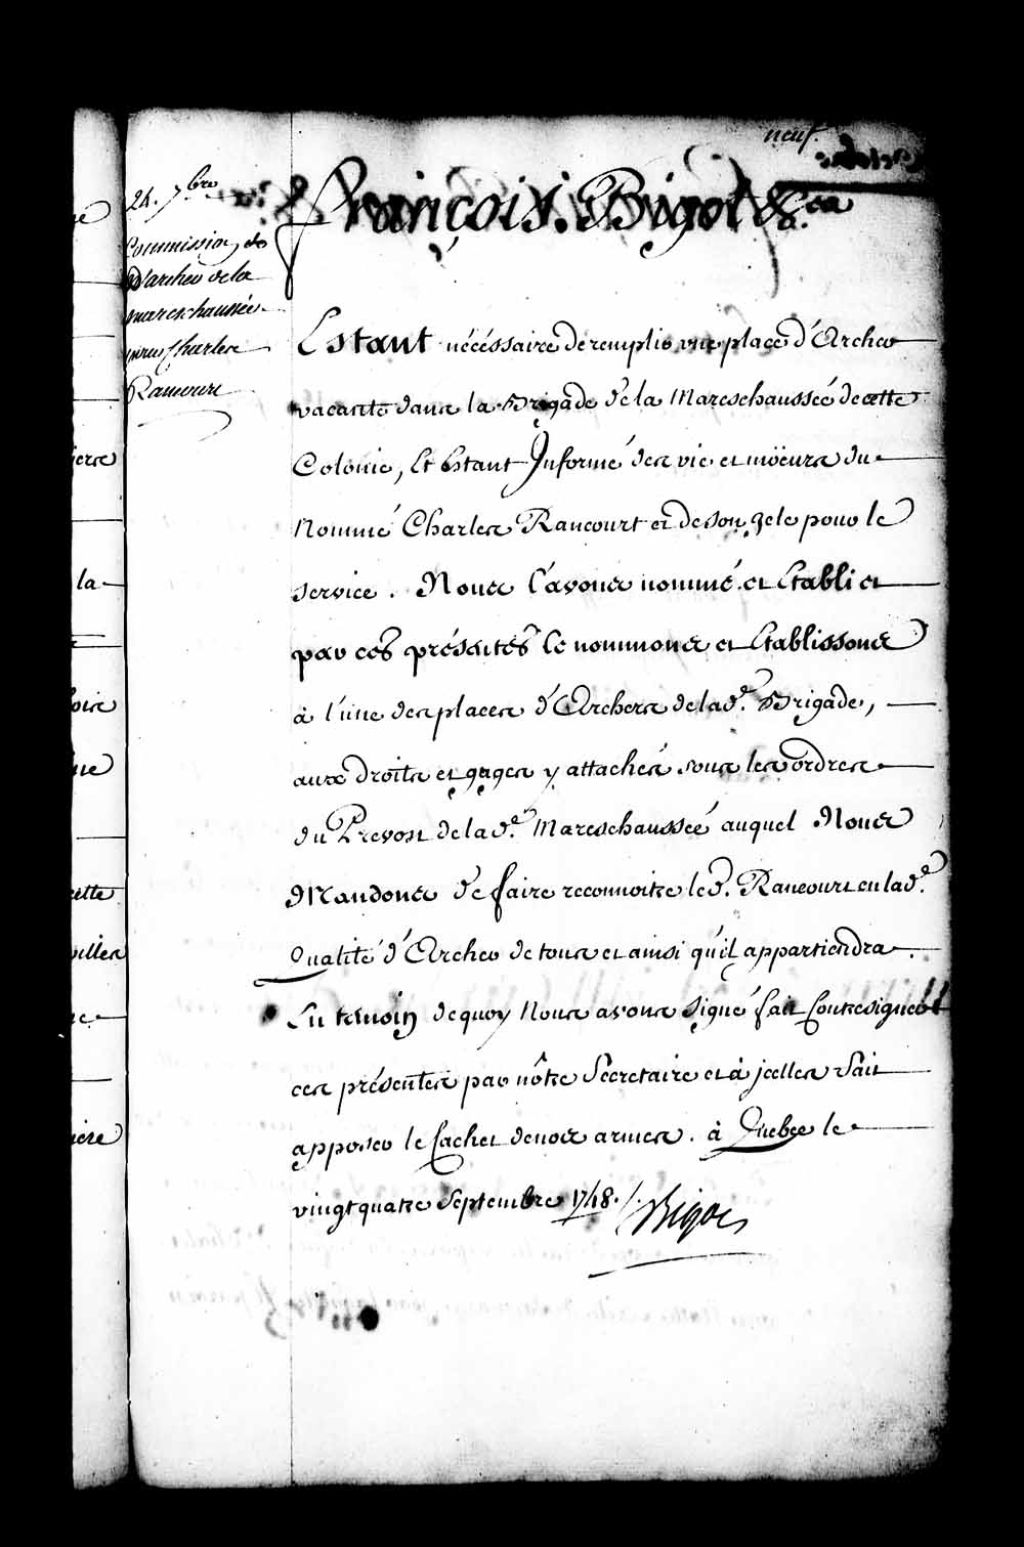 neuf.
24. 7bre
Commission de
d'archer de la
mareschaussée
pour Charles
Rancourt
François. Bigot &ca.
Estant nécéssaire de remplir une place d'Archer
vacante dans la Brigade de la Mareschaussée de cette
Colonie, Et Estant Informé des vie et moeurs du
Nommé Charles Rancourt et de son zele pour le
service. Nous l'avons nommé et Etabli et
par ces présentes le nommons et Etablissons
à l'une des places d'Archers de la de. Brigade,
aux droits et gages y attachés sous les ordres
du Prevost de la de. Mareschaussée auquel Nous
Mandons de faire reconnoitre led. Rancourt en lade.
Qualité d'Archer de tous et ainsi qu'il appartiendra.
En temoin de quoy Nous avons signé fait Contresigner
ces présentes par nôtre Secretaire et à jcelles fait
apposer le Cachet de nos armes. à Quebec le
vingt quatre Septembre 1748. /. Bigot
ge
iers
la
ois
ue
cette
villes
re
iere